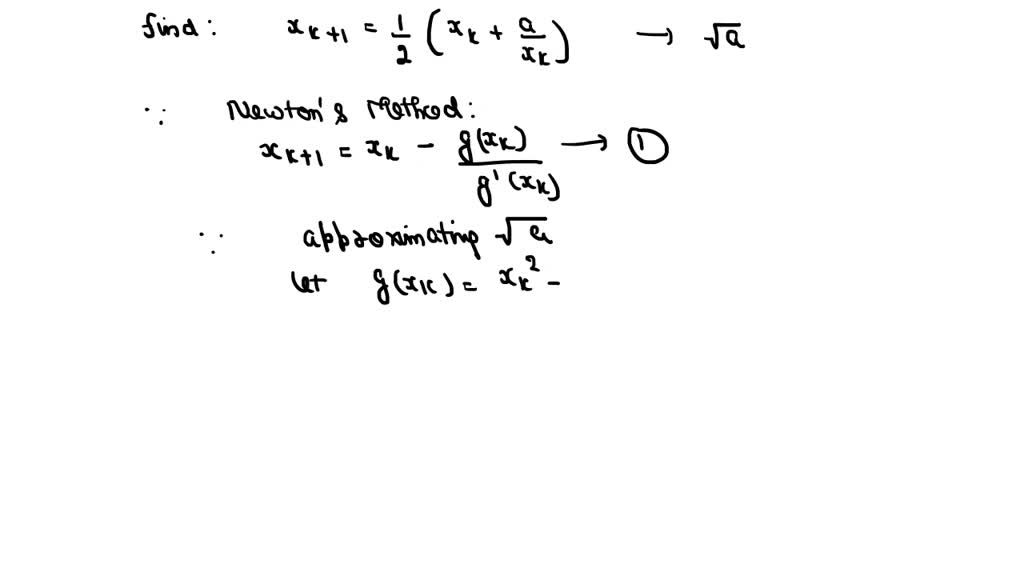 find: x_{k+1} = 1/2 (x_k + a/x_k) → √a
∵ Newton's Method:
x_{k+1} = x_k - g(x_k)/g'(x_k) → ①
∵ approximating √a
let g(x_k) = x_k^2 -